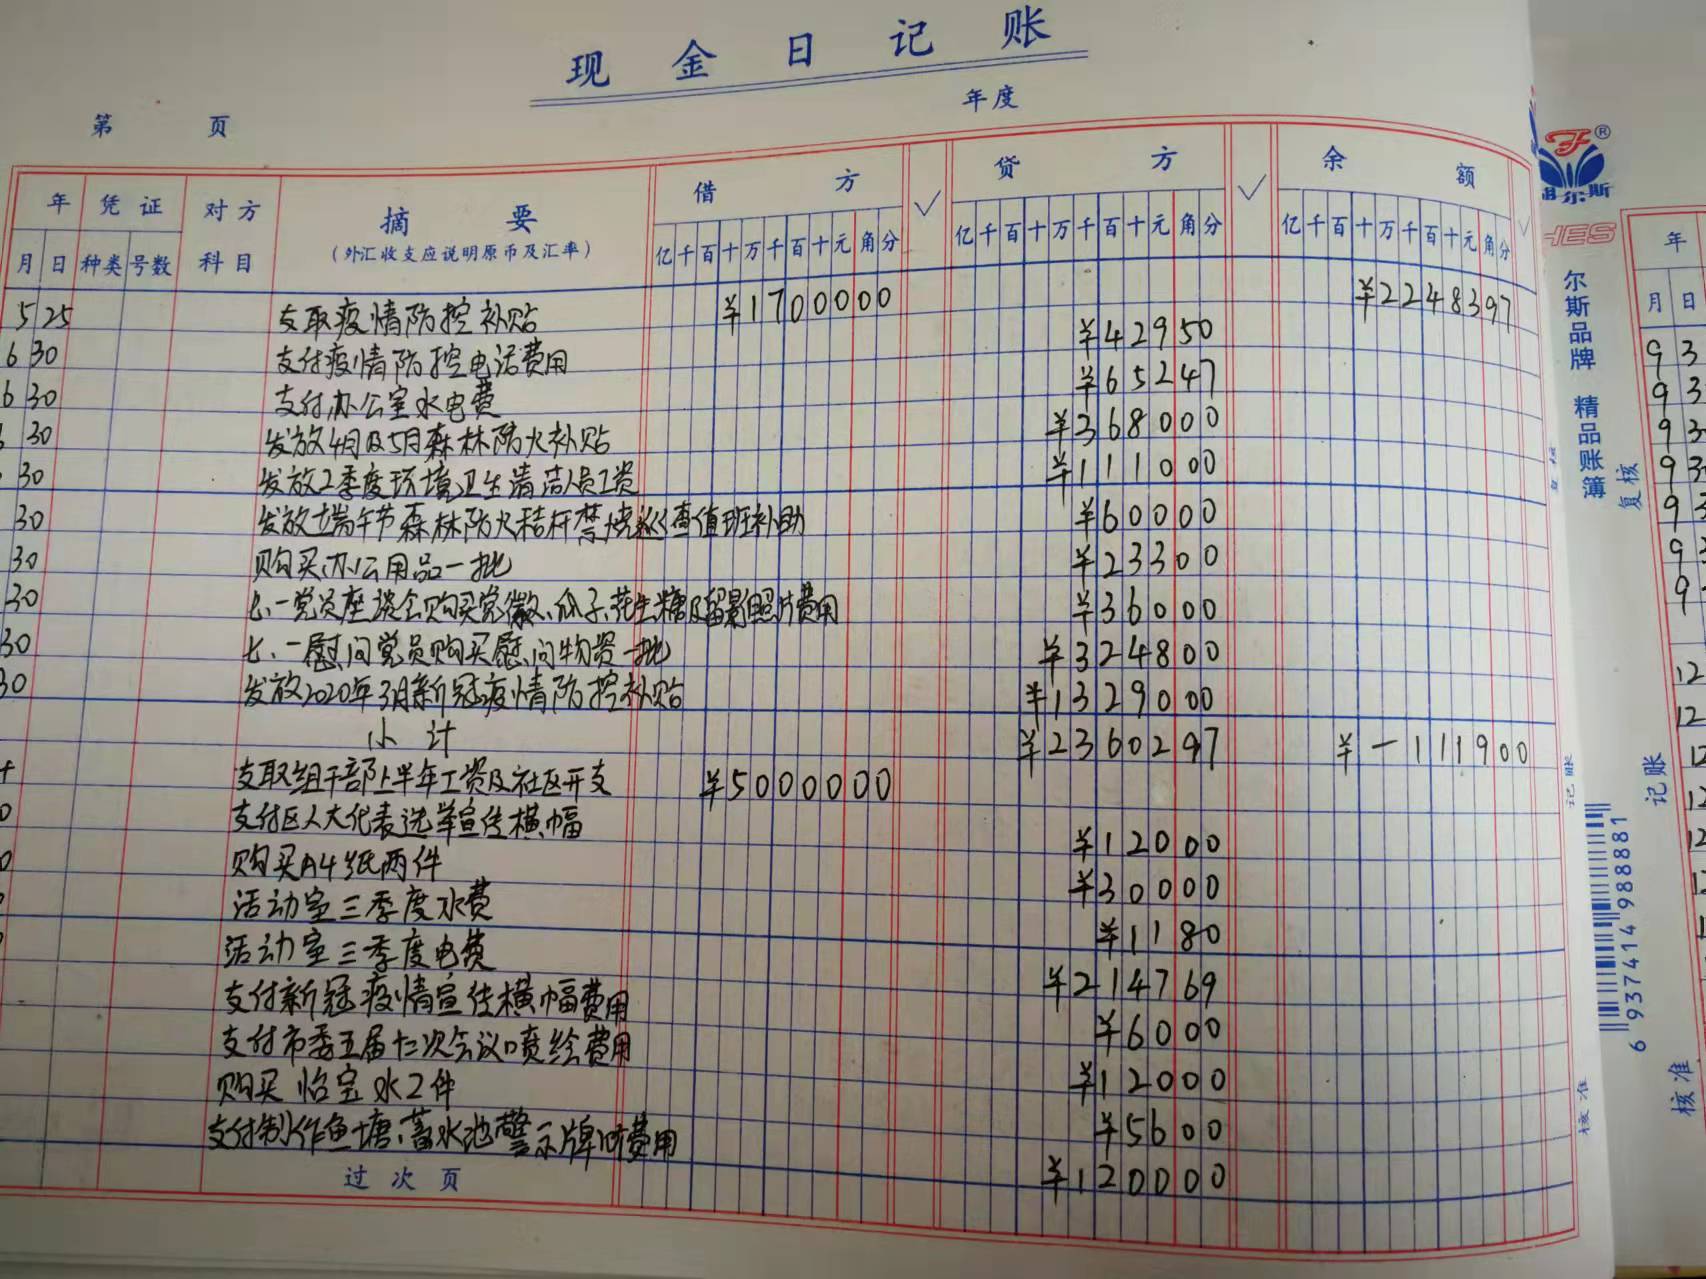 现金日记账
第 页
年度
年 凭证 对方科目 摘要 借方 ✓ 贷方 ✓ 余额 ✓
(外汇收支应说明原币及汇率)
月 日 种类 号数 亿千百十万千百十元角分 亿千百十万千百十元角分 亿千百十万千百十元角分
5 25 支取疫情防控补贴 ¥1700000 ¥2248397
6 30 支付疫情防控电话费用 ¥42950
6 30 支付办公室水电费 ¥65247
30 发放4月及5月森林防火补贴 ¥368000
30 发放2季度环境卫生清洁人员工资 ¥111000
30 发放端午节森林防火秸秆禁烧巡查值班补助 ¥60000
30 购买办公用品一批 ¥23300
30 七.一党员座谈会购买党徽、瓜子、花生糖及留影照片费用 ¥36000
30 七.一慰问党员购买慰问物资一批 ¥324800
30 发放2020年3月新冠疫情防控补贴 ¥1329000
小计 ¥2360297 ¥-111900
支取组干部上半年工资及社区开支 ¥5000000
支付区人大代表选举宣传横幅 ¥12000
购买A4纸两件 ¥30000
活动室三季度水费 ¥1180
活动室三季度电费 ¥214769
支付新冠疫情宣传横幅费用 ¥6000
支付市委五届十三次会议喷绘费用 ¥12000
购买怡宝水2件 ¥5600
支付制作鱼塘、蓄水池警示牌费用 ¥120000
过次页
复核
记账
核准
尔斯
HES
尔斯品牌 精品账簿
6 937414 988881
年
月 日
9 3
9 3
9 3
9 3
9 3
9 3
9
12
12
12
12
12
12
复核
记账
核准